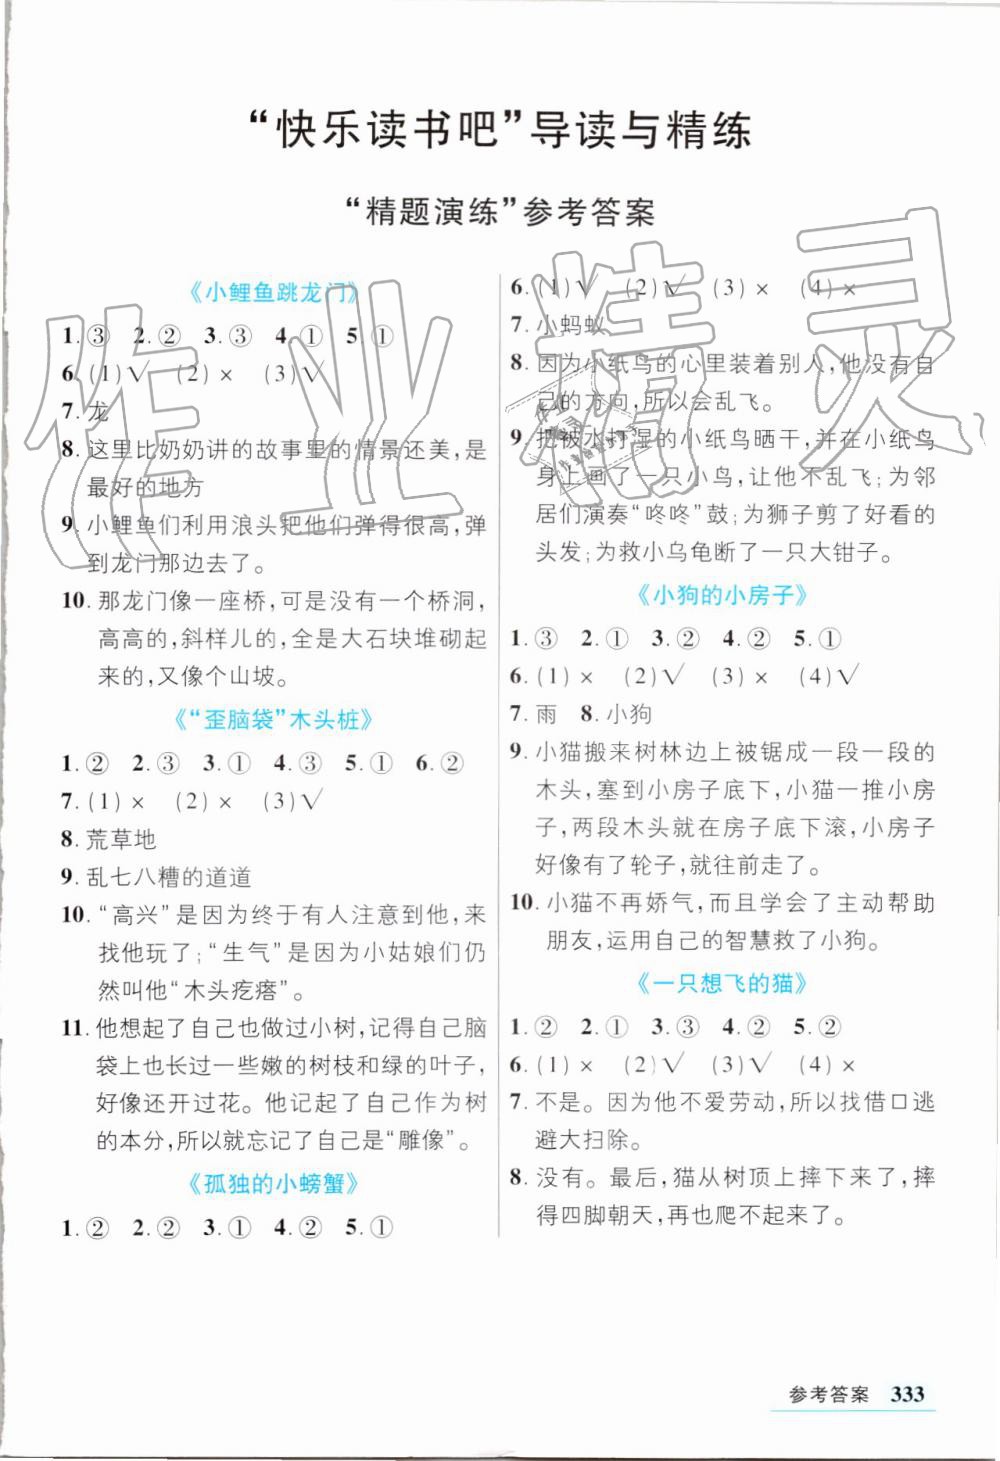 “快乐读书吧”导读与精练
“精题演练”参考答案
《小鲤鱼跳龙门》
1.③ 2.② 3.③ 4.① 5.①
6.(1)√ (2)× (3)√
7.龙
8.这里比奶奶讲的故事里的情景还美,是
最好的地方
9.小鲤鱼们利用浪头把他们弹得很高,弹
到龙门那边去了。
10.那龙门像一座桥,可是没有一个桥洞,
高高的,斜样儿的,全是大石块堆砌起
来的,又像个山坡。
《“歪脑袋”木头桩》
1.② 2.③ 3.① 4.③ 5.① 6.②
7.(1)× (2)× (3)√
8.荒草地
9.乱七八糟的道道
10.“高兴”是因为终于有人注意到他,来
找他玩了;“生气”是因为小姑娘们仍
然叫他“木头疙瘩”。
11.他想起了自己也做过小树,记得自己脑
袋上也长过一些嫩的树枝和绿的叶子,
好像还开过花。他记起了自己作为树
的本分,所以就忘记了自己是“雕像”。
《孤独的小螃蟹》
1.② 2.② 3.① 4.② 5.①
6.(1)√ (2)√ (3)× (4)×
7.小蚂蚁
8.因为小纸鸟的心里装着别人,他没有自
己的方向,所以会乱飞。
9.把被水打湿的小纸鸟晒干,并在小纸鸟
身上画了一只小鸟,让他不乱飞;为邻
居们演奏“咚咚”鼓;为狮子剪了好看的
头发;为救小乌龟断了一只大钳子。
《小狗的小房子》
1.③ 2.① 3.② 4.② 5.①
6.(1)× (2)√ (3)× (4)√
7.雨 8.小狗
9.小猫搬来树林边上被锯成一段一段的
木头,塞到小房子底下,小猫一推小房
子,两段木头就在房子底下滚,小房子
好像有了轮子,就往前走了。
10.小猫不再娇气,而且学会了主动帮助
朋友,运用自己的智慧救了小狗。
《一只想飞的猫》
1.② 2.① 3.③ 4.② 5.②
6.(1)× (2)√ (3)√ (4)×
7.不是。因为他不爱劳动,所以找借口逃
避大扫除。
8.没有。最后,猫从树顶上摔下来了,摔
得四脚朝天,再也爬不起来了。
参考答案 333
作业精灵